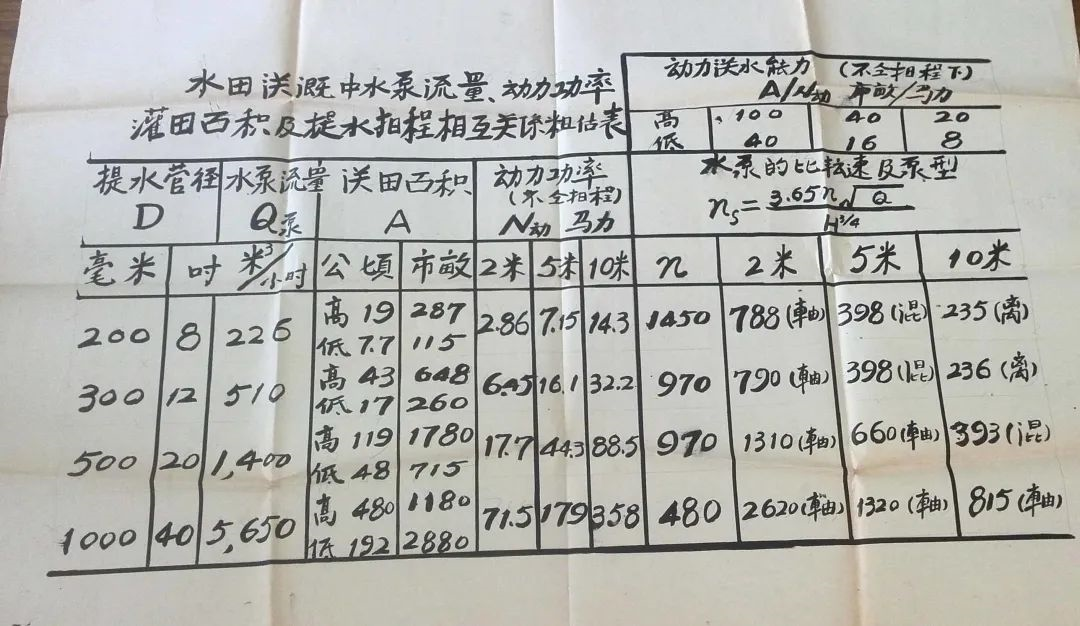 水田送溉中水泵流量、动力功率
灌田面积及提水扬程相互关系粗估表
动力送水能力 (不全扬程下)
A/N动 市亩/马力
高 100 40 20
低 40 16 8
提水管径 水泵流量 送田面积 动力功率 水泵的比转速及泵型
(不全扬程)
D Q泵 A N动 马力 nₛ=3.65n√Q/H^3/4
毫米 吋 米³/小时 公顷 市亩 2米 5米 10米 n 2米 5米 10米
200 8 226 高 19 287 2.86 7.15 14.3 1450 788(軸) 398(混) 235(离)
低 7.7 115
300 12 510 高 43 648 6.45 16.1 32.2 970 790(軸) 398(混) 236(离)
低 17 260
500 20 1,400 高 119 1780 17.7 44.3 88.5 970 1310(軸) 660(軸) 393(混)
低 48 715
1000 40 5,650 高 480 1180 71.5 179 358 480 2620(軸) 1320(軸) 815(軸)
低 192 2880